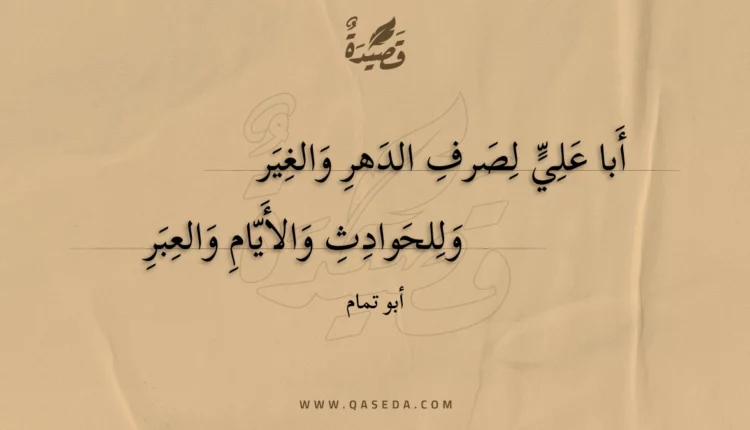 قَصِيدَةٌ
أَبا عَلِيٍّ لِصَرفِ الدَهرِ وَالغِيَرِ
وَلِلحَوادِثِ وَالأَيّامِ وَالعِبَرِ
أبو تمام
WWW.QASEDA.COM